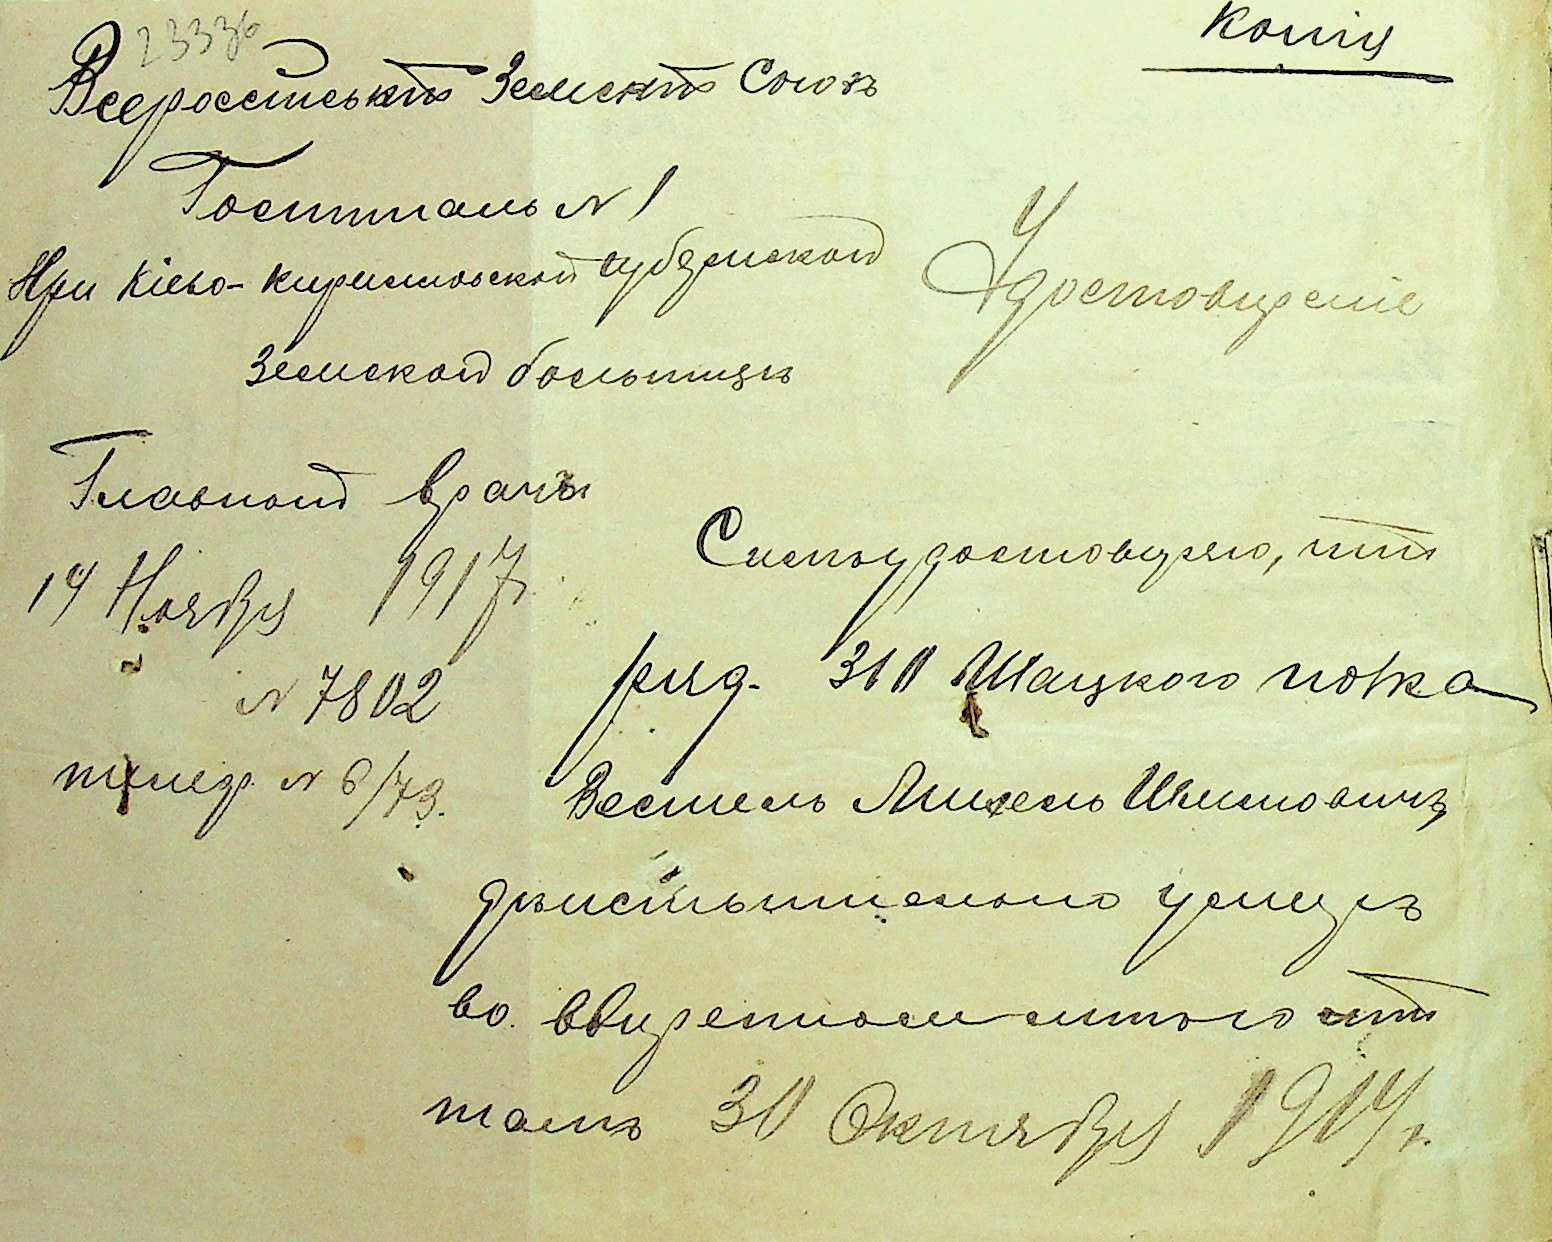 23336
копія
Всероссійскій Земскій Союзъ
Госпиталь № 1
При Кіево-Кирилловской губернской
Земской больницѣ
Удостовѣреніе
Главный врачъ
14 Ноября 1917 г.
№ 7802
телеф. № 6/73.
Симъ удостовѣряю, что
ряд. 310 Шацкого полка
Вестель Михель Ицковичъ
дѣйствительно умеръ
во ввѣренномъ мнѣ гос
талѣ 30 Октября 1914 г.